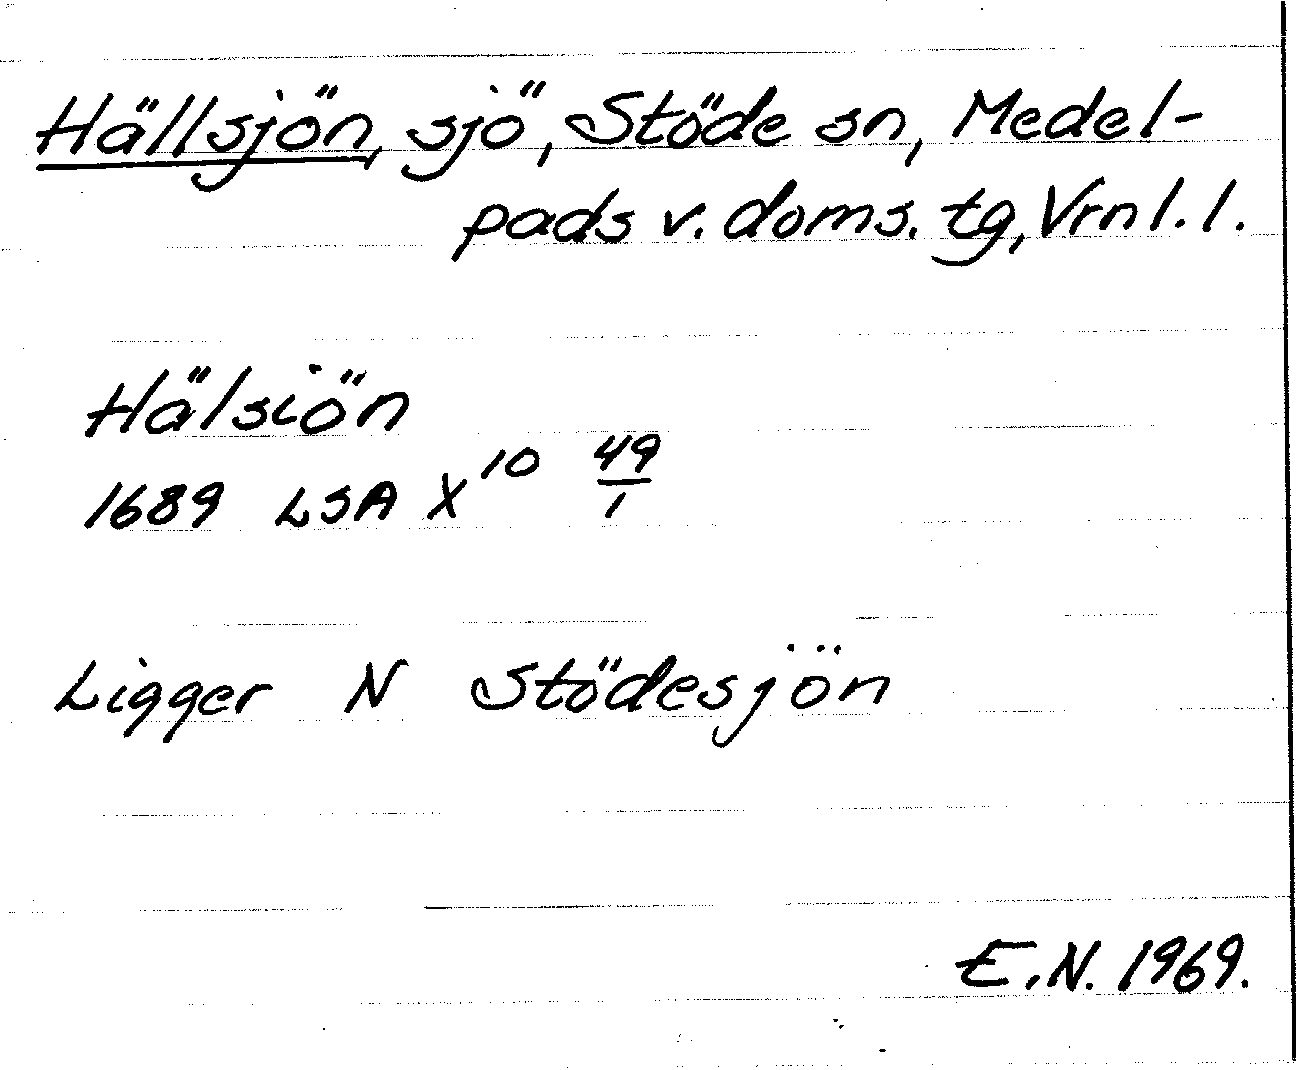 Hällsjön, sjö, Stöde sn, Medel-
pads v. doms. tg, Vrnl. l.
Hälsiön
1689 LSA X¹⁰ 49/1
Ligger N Stödesjön
E.N. 1969.